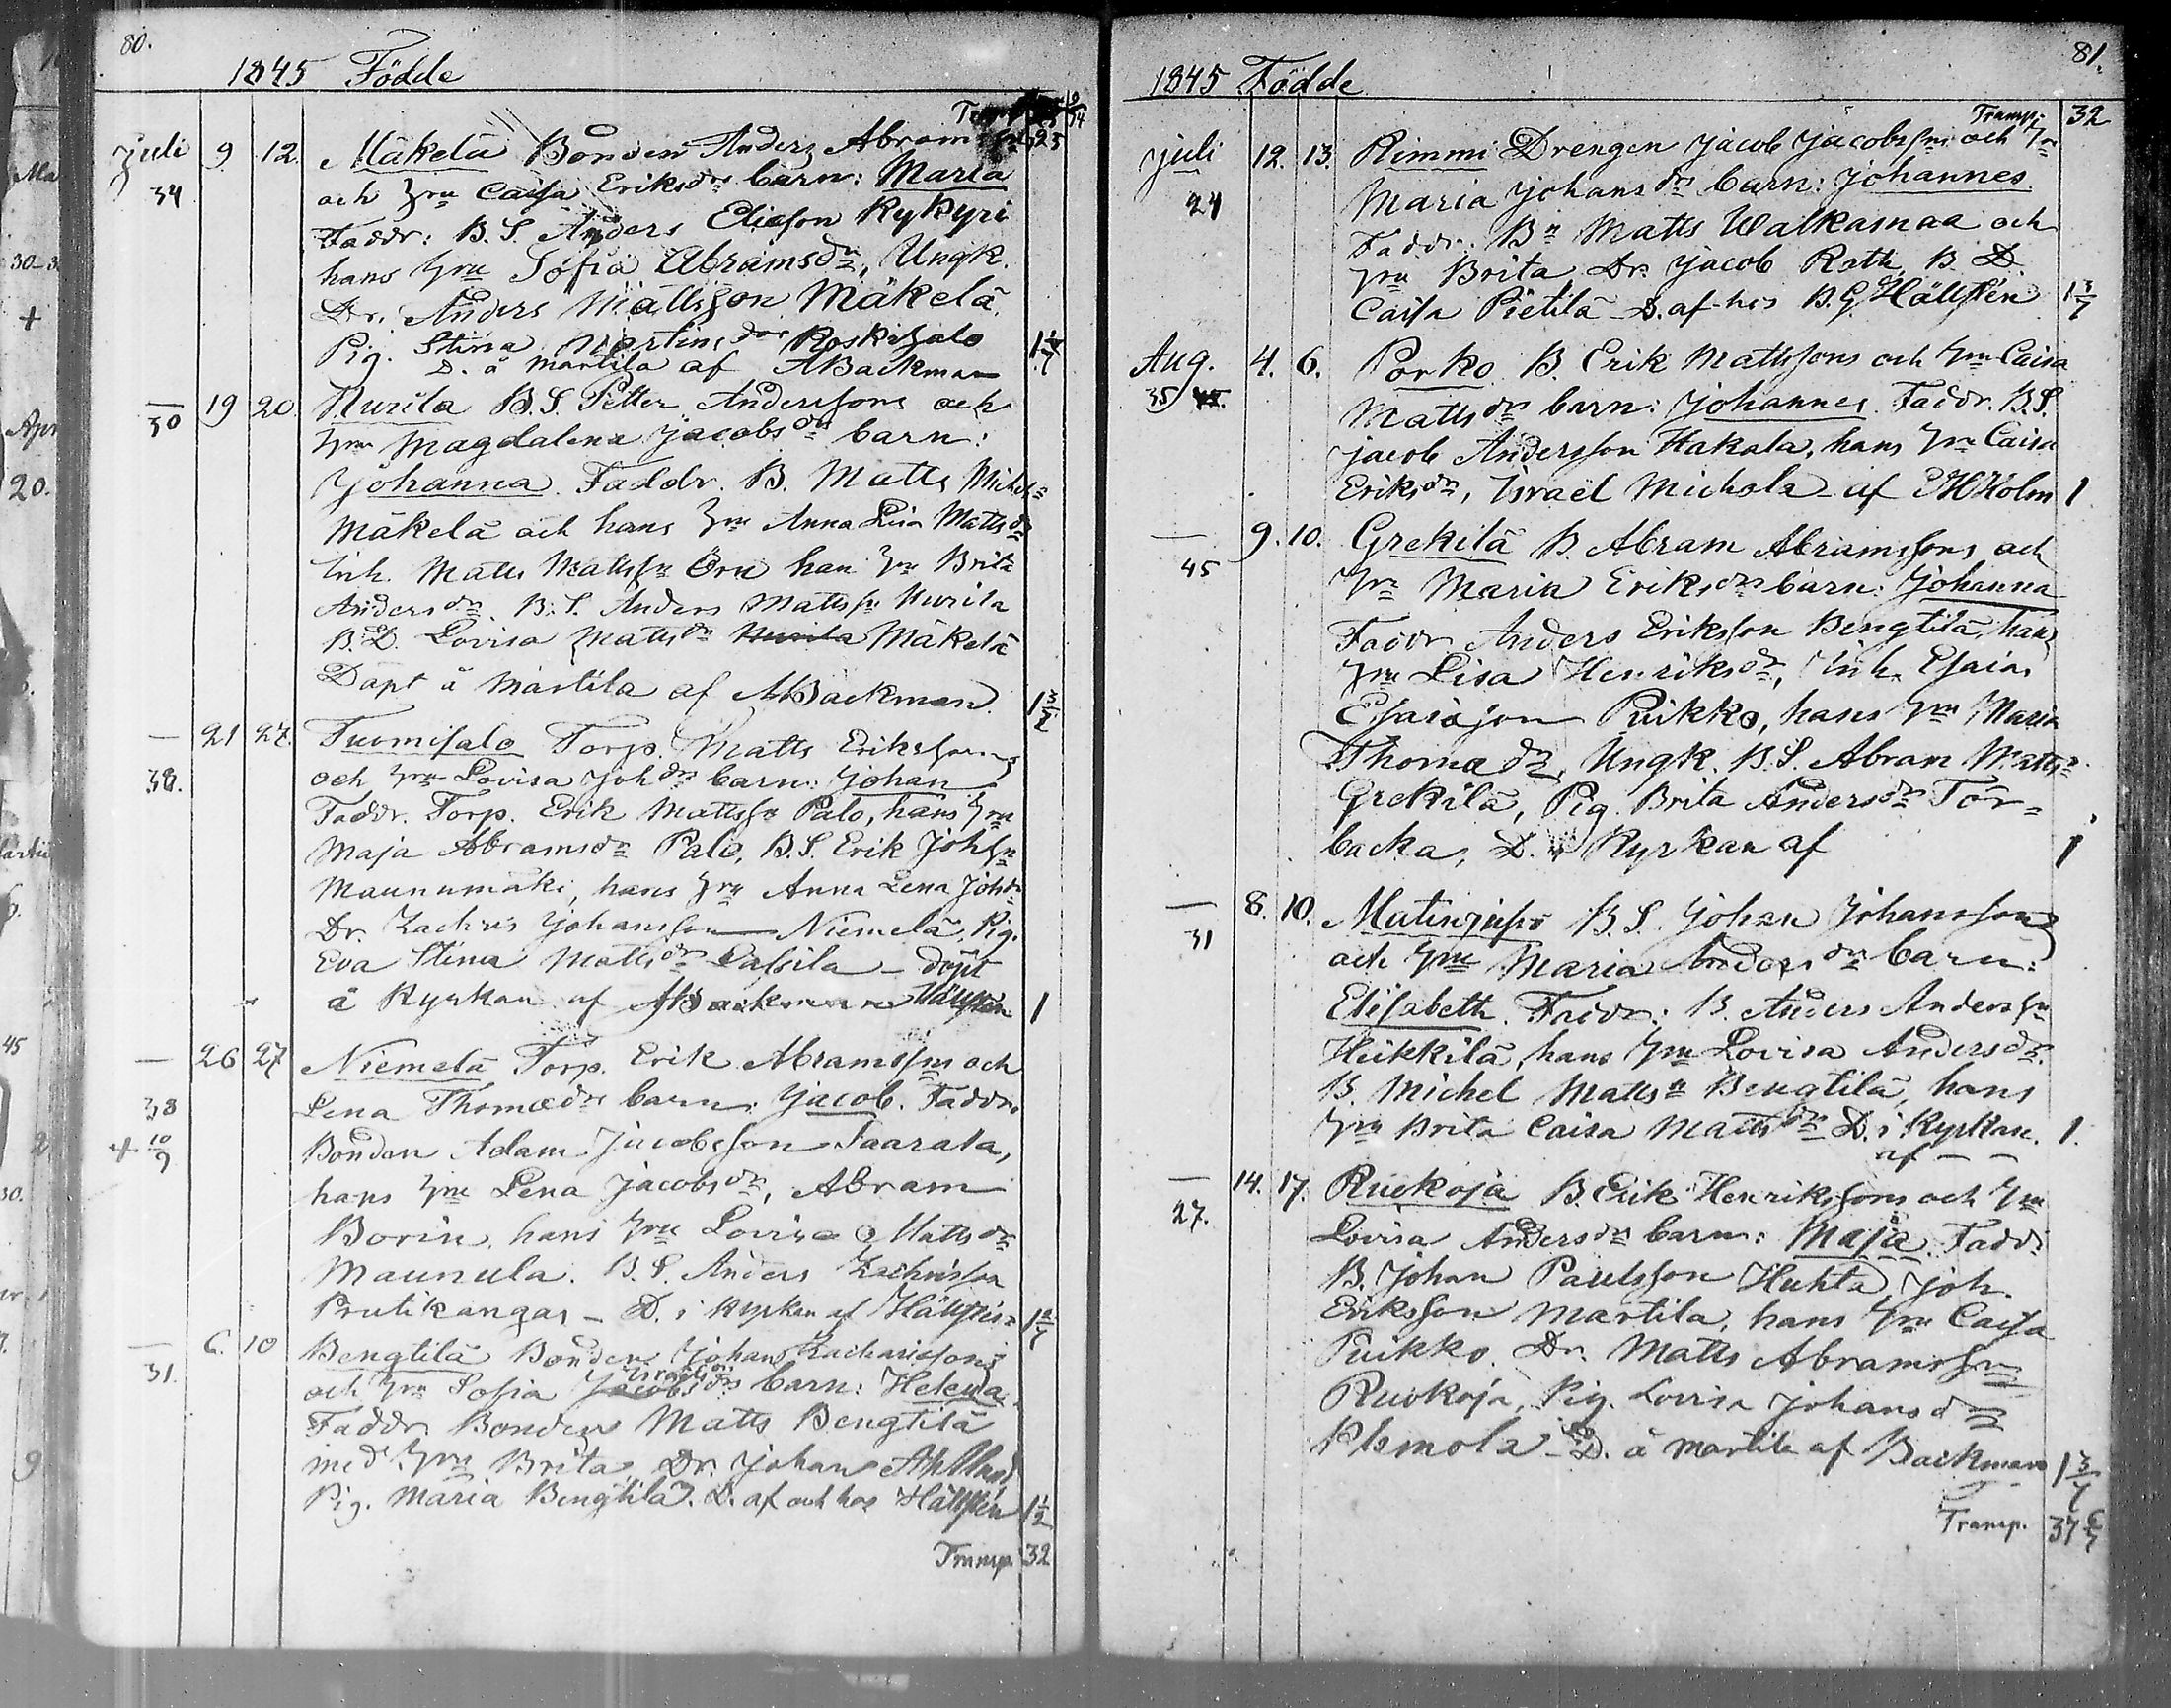 80.
1845 Födde
Juli 9 12. Mäkelä Bonden Anders Abrams 25
34 och hru Caisa Eriksdr barn: Maria
Faddr: B. S. Anders Eliasson Kykyri
hans hru Sofia Abramsdr, Ungk.
Dr. Anders Mattsson Mäkelä
Pig. Stina Martinsdr Koskisalo
D. å Martila af ABackman
— 19 20. Nurila B.S. Petter Anderssons och
30 hru Magdalena Jacobsdr barn:
Johanna. Faddr. B. Matts Michelsn
Mäkelä och hans hru Anna Lisa Mattsdr
Inh. Matts Mattssn Örn han hru Brita
Andersdr. B. S. Anders Mattssn Nurila
B. D. Lovisa Mattsdr Nurila Mäkelä
Döpt å Martila af ABackman.
— 21 27. Tuomisalo Torp. Matts Erikssons
38. och hru Lovisa Johdr barn: Johan
Faddr. Torp. Erik Mattssn Palo, hans hru
Maja Abramsdr Palo, B. S. Erik Johsn
Maunumäki, hans hru Anna Lena Johdr
Dr. Zachris Johansson Niemelä, Pig.
Eva Stina Mattsdr Lassila – döpt
å Kyrkan af ABackman Hällsten 1
— 26 27 Niemelä Torp. Erik Abramssns och
38 Lena Thomædrs barn: Jacob. Faddr.
+ 10/9 Bonden Adam Jacobsson Saarala,
hans hru Lena Jacobsdr, Abram
Borin, hans hru Lovisa Mattsdr
Maunula. B. S. Anders Zachrisson
Prutikangas – D. i Kyrkan af Hällsten
— 6. 10 Bengtilä Bonden Johan Zacharissons
31. och hru Sofia Jacobsdrs Israelsdr barn: Helena.
Faddr. Bonden Matts Bengtilä
med hru Brita, Dr. Johan
Pig. Maria Bengtilä. D. af och hos Hällstén 1 1/2
Transp. 32
81.
1845 Födde
Transp. 32
Juli 12. 13. Rimmi Drengen Jacob Jacobssns och hru
24 Maria Johansdrs barn: Johannes
Faddr. Bn Matts Walkamaa och
hru Brita, Dr. Jacob Rath, B. D.
Caisa Pietilä – D. af hos B. G. Hällstén 1 3/7
Aug. 4. 6. Porko B. Erik Mattssons och hru Caisa
35 Mattsdrs barn: Johannes. Faddr. B. S.
Jacob Andersson Hakala, hans hru Caisa
Eriksdr, Israël Michola – af Holm 1
— 9. 10. Grekilä B. Abram Abramssons och
45 hru Maria Eriksdrs barn: Johanna
Faddr. Anders Eriksson Bengtilä, hans
hru Lisa Henriksdr, Inh. Esaias
Esaiasson Puikko, hans hru Maria
Thomædr, Ungk. B. S. Abram Mattsn
Grekilä, Pig. Brita Andersdr Tör-
backa, D. i Kyrkan af 1
— 8. 10. Matinjussi B. S. Johan Johanssons
31 och hru Maria Andersdrs barn:
Elisabeth. Faddr: B. Anders Anderssn
Heikkilä, hans hru Lovisa Andersdr.
B. Michel Mattsn Bengtilä, hans
hru Brita Caisa Mattsdr D. i Kyrkan. 1.
af – –
— 14. 17. Ruokoja B. Erik Henrikssons och hru
27. Lovisa Andersdrs barn: Maja. Faddr
B. Johan Paulsson Huhta, Joh.
Eriksson Martila, hans hru Caisa
Puikko. Dr. Matts Abramssn
Ruokoja, Pig. Lovisa Johansdr
Plamola – D. å Martila af Backman 1 3/7
Transp. 37 6/7